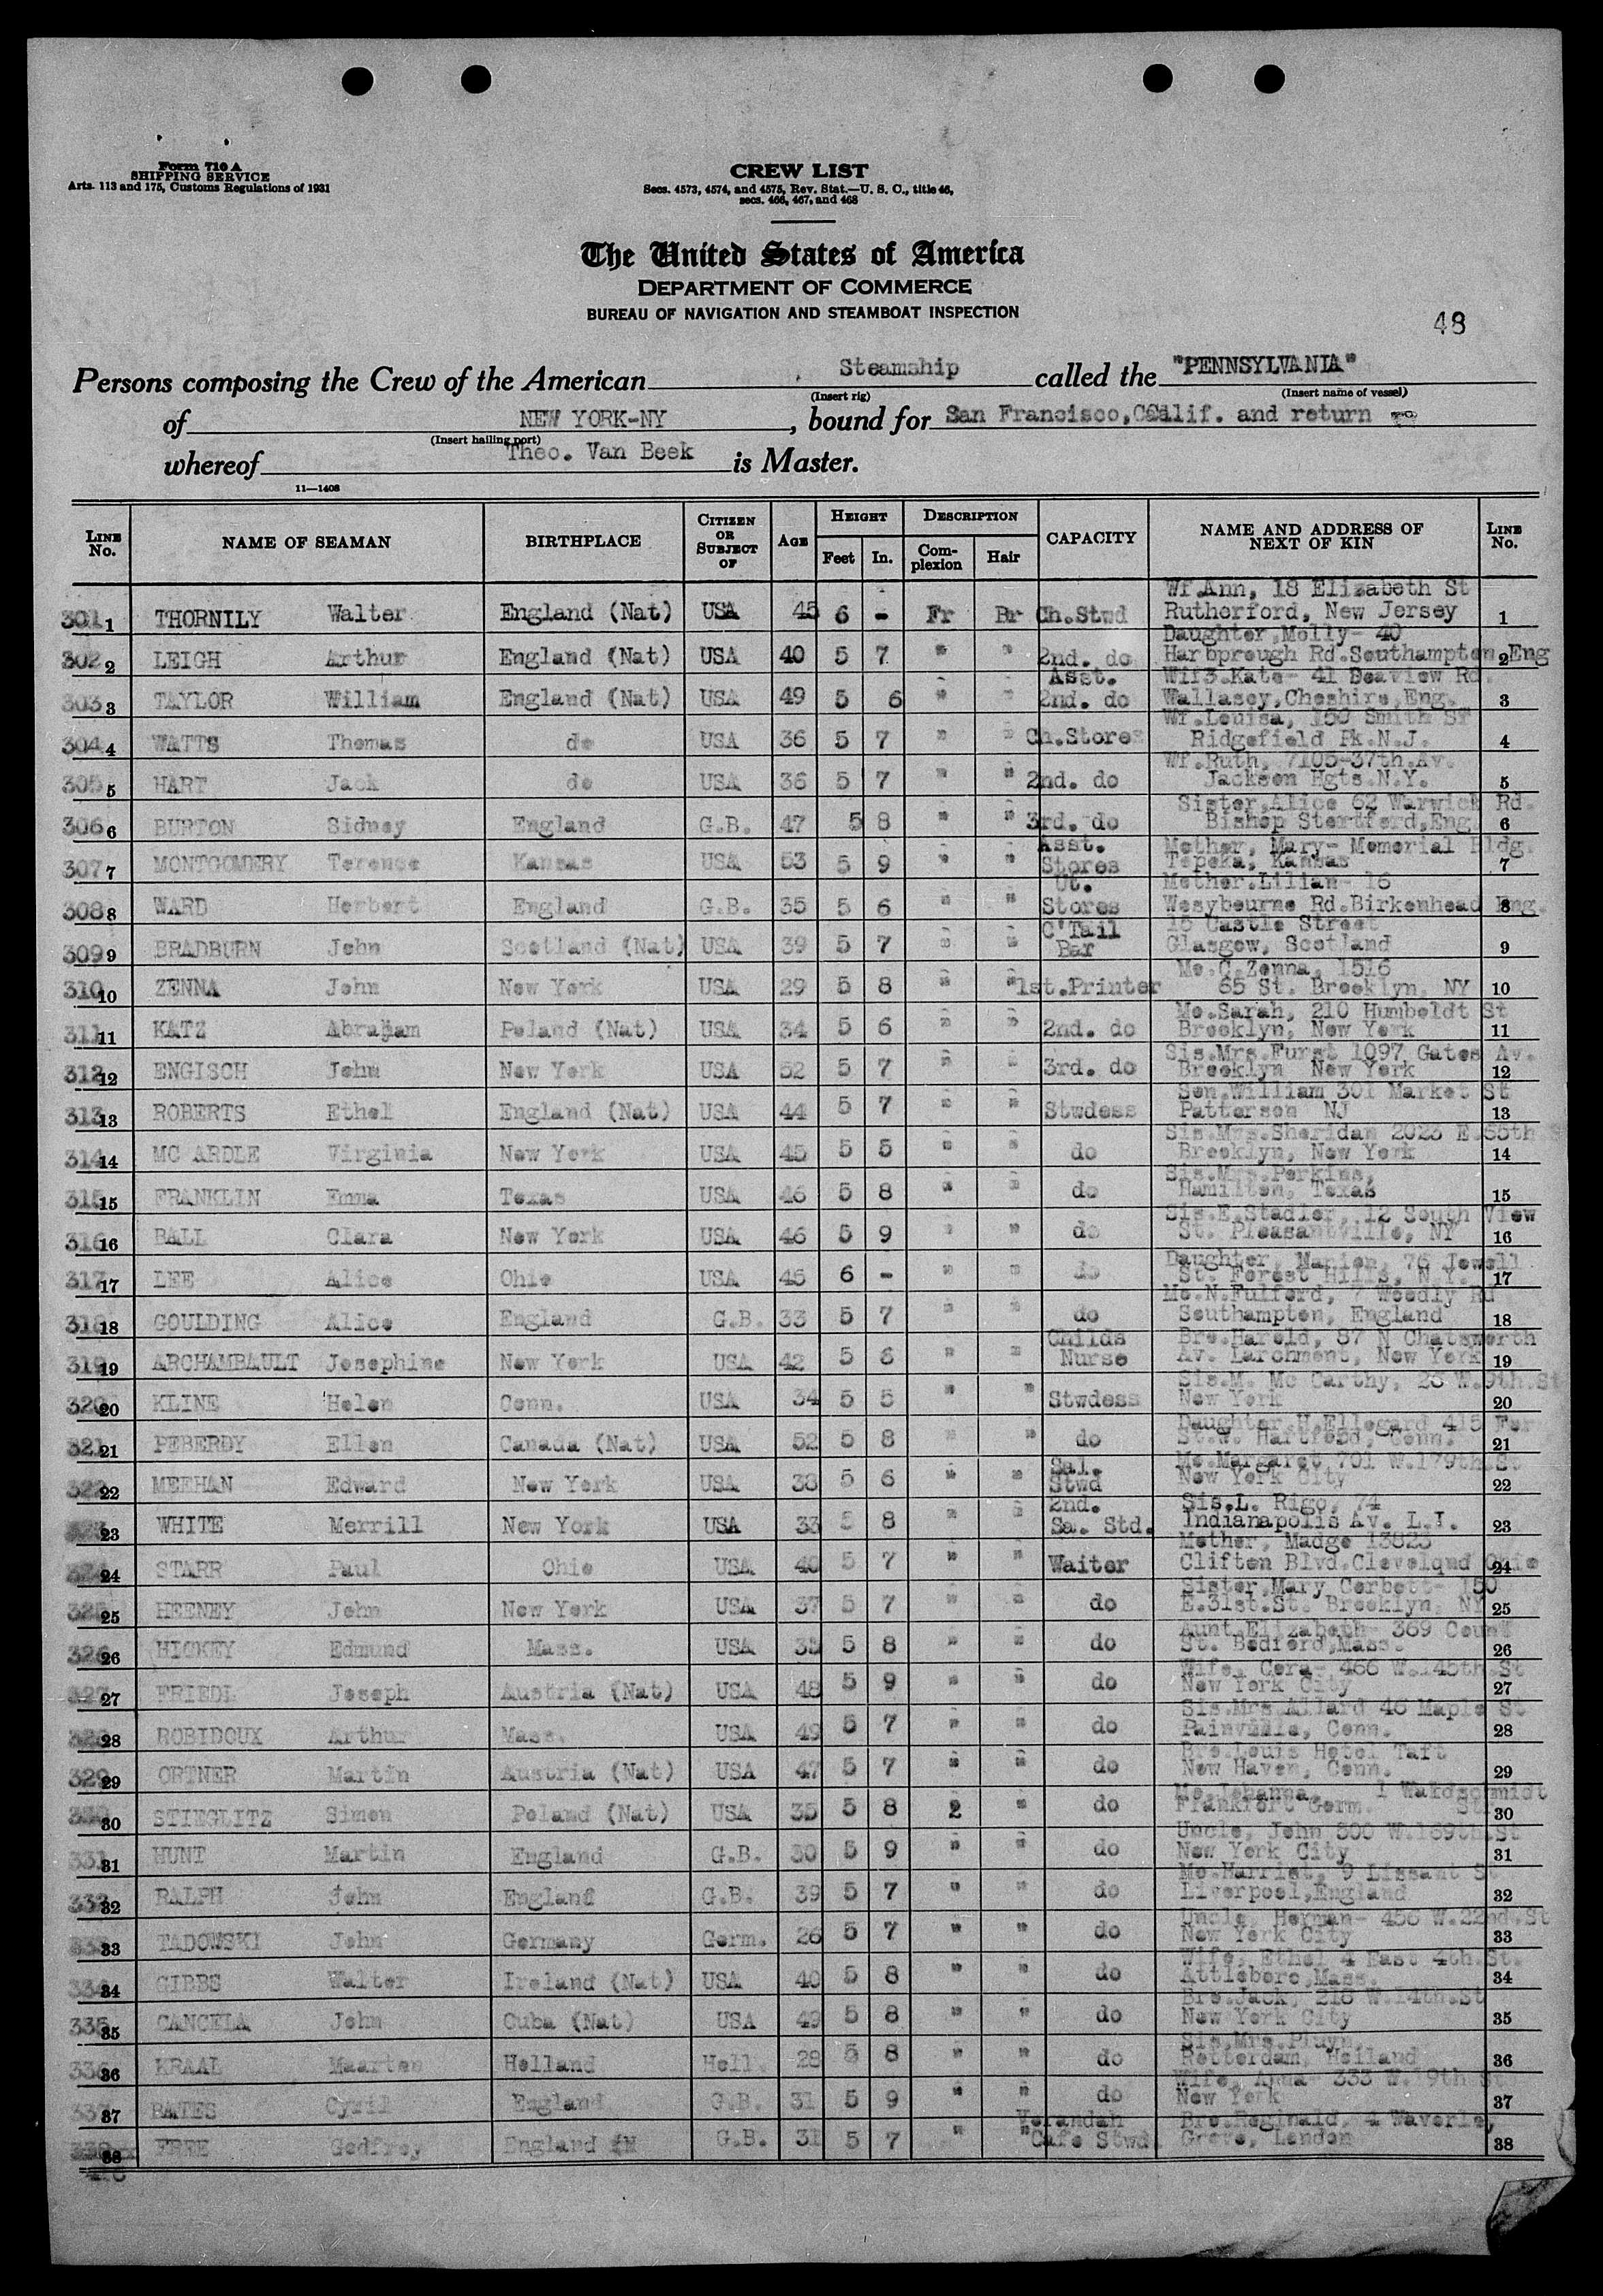 Form 710 A
SHIPPING SERVICE
Arts. 113 and 175, Customs Regulations of 1931
CREW LIST
Secs. 4573, 4574, and 4575, Rev. Stat.—U. S. C., title 46,
secs. 466, 467, and 468
The United States of America
DEPARTMENT OF COMMERCE
BUREAU OF NAVIGATION AND STEAMBOAT INSPECTION
48
Persons composing the Crew of the American Steamship called the "PENNSYLVANIA"
(Insert rig) (Insert name of vessel)
of NEW YORK-NY, bound for San Francisco, Calif. and return
(Insert hailing port)
whereof Theo. Van Beek is Master.
11—1408
LINE No. NAME OF SEAMAN BIRTHPLACE CITIZEN OR SUBJECT OF AGE HEIGHT Feet In. DESCRIPTION Complexion Hair CAPACITY NAME AND ADDRESS OF NEXT OF KIN LINE No.
301 1 THORNILY Walter England (Nat) USA 45 6 - Fr Br Ch.Stwd Wf.Ann, 18 Elizabeth St Rutherford, New Jersey 1
302 2 LEIGH Arthur England (Nat) USA 40 5 7 " " 2nd. do Daughter,Molly- 40 Harbprough Rd.Southampton Eng 2
303 3 TAYLOR William England (Nat) USA 49 5 6 " " Asst. 2nd. do Wif3.Kate- 41 Seaview Rd. Wallasey,Cheshire,Eng. 3
304 4 WATTS Thomas do USA 36 5 7 " " Ch.Stores Wf.Louisa, 150 Smith ST Ridgefield Pk.N.J. 4
305 5 HART Jack do USA 36 5 7 " " 2nd. do Wf.Ruth, 7105-37th.Av. Jackson Hgts.N.Y. 5
306 6 BURTON Sidney England G.B. 47 5 8 " " 3rd. do Sister,Alice 62 Warwick Rd. Bishop Stortford,Eng. 6
307 7 MONTGOMERY Terence Kansas USA 53 5 9 " " Asst. Stores Mother, Mary- Memorial Bldg. Topeka, Kansas 7
308 8 WARD Herbert England G.B. 35 5 6 " " Ut. Stores Mother.Lilian- 16 Wesybourne Rd.Birkenhead Eng. 8
309 9 BRADBURN John Scotland (Nat) USA 39 5 7 " " C'Tail Bar 15 Castle Street Glasgow, Scotland 9
310 10 ZENNA John New York USA 29 5 8 " " 1st.Printer Mo.C.Zenna, 1516 65 St. Brooklyn, NY 10
311 11 KATZ Abraham Poland (Nat) USA 34 5 6 " " 2nd. do Mo.Sarah, 210 Humboldt St Brooklyn, New York 11
312 12 ENGISCH John New York USA 52 5 7 " " 3rd. do Sis.Mrs.Furst 1097 Gates Av. Brooklyn New York 12
313 13 ROBERTS Ethel England (Nat) USA 44 5 7 " " Stwdess Son.William 301 Market St Patterson NJ 13
314 14 MC ARDLE Virginia New York USA 45 5 5 " " do Sis.Mrs.Sheridan 2023 E.55th Brooklyn, New York 14
315 15 FRANKLIN Emma Texas USA 46 5 8 " " do Sis.Mrs.Perkins, Hamilton, Texas 15
316 16 BALL Clara New York USA 46 5 9 " " do Sis.E.Stadler, 12 South View St. Pleasantville, NY 16
317 17 LEE Alice Ohio USA 45 6 - " " do Daughter, Marion, 76 Jewell St. Forest Hills, N.Y. 17
318 18 GOULDING Alice England G.B. 33 5 7 " " do Mo.N.Fulford, 7 Woodly Rd Southampton, England 18
319 19 ARCHAMBAULT Josephine New York USA 42 5 6 " " Childs Nurse Bro.Harold, 87 N Chatsworth Av. Larchmont, New York 19
320 20 KLINE Helen Conn. USA 34 5 5 " " Stwdess Sis.M. Mc Carthy, 28 W.9th.St New York 20
321 21 PEBERDY Ellen Canada (Nat) USA 52 5 8 " " do Daughter.H.Ellegard 415 Hartford, Conn. 21
322 22 MEEHAN Edward New York USA 38 5 6 " " Sal. Stwd Mo.Margaret 701 W.179th.St New York City 22
323 23 WHITE Merrill New York USA 33 5 8 " " 2nd. Sa. Std. Sis.L. Rigo, 74 Indianapolis Av. L.I. 23
324 24 STARR Paul Ohio USA 40 5 7 " " Waiter Mother, Madge 13823 Clifton Blvd.Clevelqnd Ohio 24
325 25 HEENEY John New York USA 37 5 7 " " do Sister,Mary Corbett- 150 E.31st.St. Brooklyn, NY 25
326 26 HICKEY Edmund Mass. USA 35 5 8 " " do Aunt.Elizabeth- 369 Count St. Bedford,Mass. 26
327 27 FRIEDL Joseph Austria (Nat) USA 48 5 9 " " do Wife, Cora- 466 W.145th.St New York City 27
328 28 ROBIDOUX Arthur Mass. USA 49 5 7 " " do Sis.Mrs Allard 46 Maple St Conn. 28
329 29 ORTNER Martin Austria (Nat) USA 47 5 7 " " do Bro.Louis Hotel Taft New Haven, Conn. 29
330 30 STIEGLITZ Simon Poland (Nat) USA 35 5 8 2 " do Mo.Johanna, 1 Wakdschmidt Frankfort Germ. St. 30
331 31 HUNT Martin England G.B. 30 5 9 " " do Uncle, John 500 W.169th.St New York City 31
332 32 RALPH John England G.B. 39 5 7 " " do Mo.Harriet, 9 Lissant St Liverpool,England 32
333 33 TADOWSKI John Germany Germ. 26 5 7 " " do Uncle, Herman- 456 W.22nd.St New York City 33
334 34 GIBBS Walter Ireland (Nat) USA 40 5 8 " " do Wife, Ethel 4 East 4th.St. Attleboro,Mass. 34
335 35 CANCELA John Cuba (Nat) USA 49 5 8 " " do Bro.Jack, 218 W.14th.St New York City 35
336 36 KRAAL Maarten Holland Holl. 28 5 8 " " do Sis.Mrs.Pluyn, Rotterdam, Holland 36
337 37 BATES Cyril England G.B. 31 5 9 " " do Wife, Anna- 333 W.19th St New York 37
338 38 FREE Godfrey England (N G.B. 31 5 7 " " Verandah Cafe Stwd. Bro.Reginald, 4 Waverley, Grove, London 38